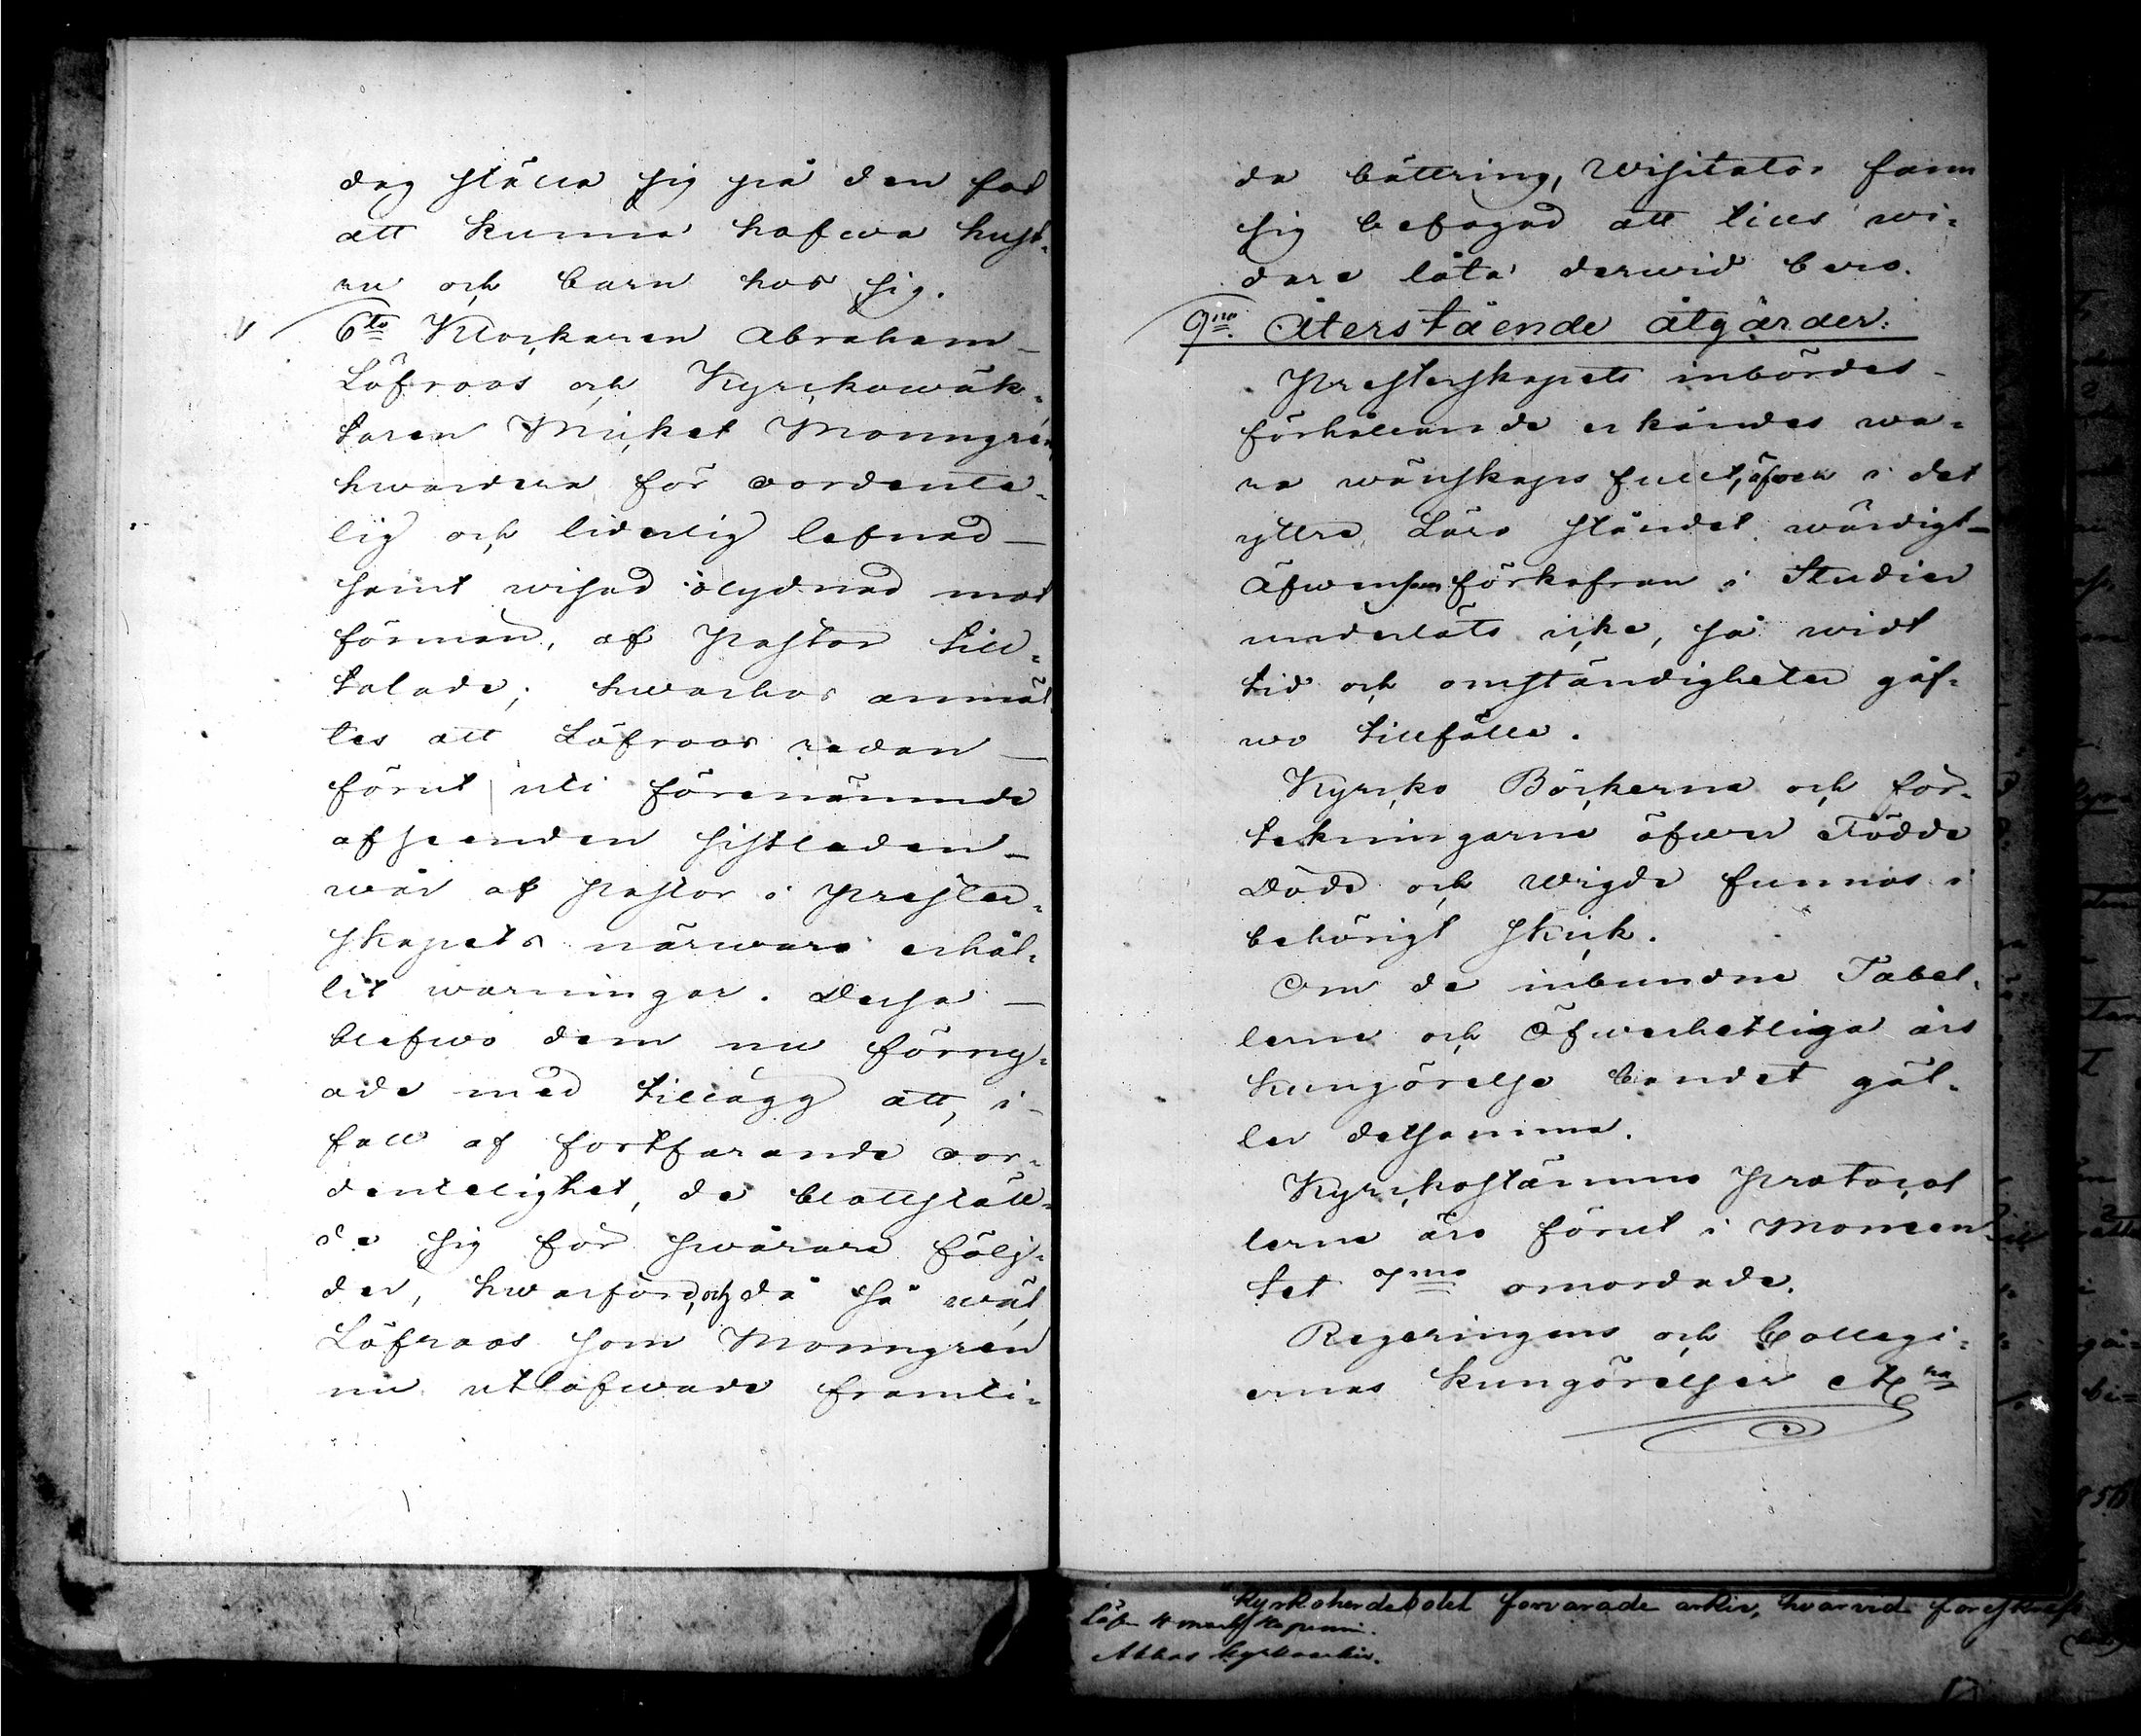 dag ställa sig på den fot
att kunna hafwa hust-
ru och barn hos sig.
6to Klockaren Abraham
Löfroos och Kyrckowäk-
taren Mickel Monngrén,
hwardera för oordente-
lig och liderlig lefnad
samt wisad olydnad mot
förmän, af Pastor till-
talade; hwarhos anmäl-
tes att Löfroos redan
förut uti förenämnde
afseenden sistleden
wår af Pastor i Prester-
skapets närwaro erhål-
lit warningar. Dessa
blefwo dem nu förny-
ade med tillägg att, i
fall af fortfarande oor-
dentelighet, de blottställ-
de sig för swårare följ-
der, hwarföre, och då så wäl
Löfroos som Monngrén
nu utlofwade framti-
da bättring, Wisitator fann
sig befogad att tills wi-
dare låta derwid bero.
9no. Återstående åtgärder.
Presterskapets inbördes
förhållande erkändes wa-
ra wänskapsfullt, äfwen i det
yttre Läro ståndet wärdigt
Äfwensom förkofran i Studier
underläts icke, så widt
tid och omständigheter gåf-
wo tillfälle.
Kyrcko Böckerna och för-
tekningarne öfwer Födde
Döde och Wigde funnos i
behörigt skick.
Om de inbundne Tabel-
lerne och Öfwerhetliga års
kungörelse bandet gäl-
ler detsamma.
Kyrckostämmo Protocol
lerne äro förut i Momen-
tet 7mo omordade.
Regeringens och Collegi-
ernas kungörelser
Kyrkoherdebolet förvarade arkiv, hvarvid